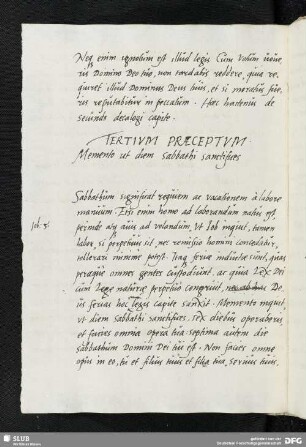 Neq enim ignotum est illud legis Cum votum voveris
Domino Deo tuo, non tardabis reddere, quia requiret
illud Dominus Deus tuus, et si moratus fueris
reputabitur in peccatum. Haec hactenus de
secundo decalogi capite.
TERTIVM PRÆCEPTVM
Memento ut diem sabbathi sanctifices
Sabbathum significat requiem ac vacationem à labore
manuum. Etsi enim homo ad laborandum natus est,
perinde atq avis ad volandum, ut Iob inquit, tamen
Iob. 5.
labor, si perpetuus sit, nec remissio homini concedatur,
tolerari minime potest. Itaq feriae indictae sunt, quas
peraeque omnes gentes custodiunt, ac quia Lex Dei
cum lege naturae perpetuo congruit, Deus
ferias hoc legis capite sanxit. Memento inquit
ut diem sabbathi sanctifices. Sex diebus operaberis
et facies omnia opera tua septima autem die
sabbathum Domini Dei tui est. Non facies omne
opus in eo, tu et filius tuus et filia tua, servus tuus,
SLUB
Wir führen Wissen.
gefördert von der
Deutschen Forschungsgemeinschaft
DFG